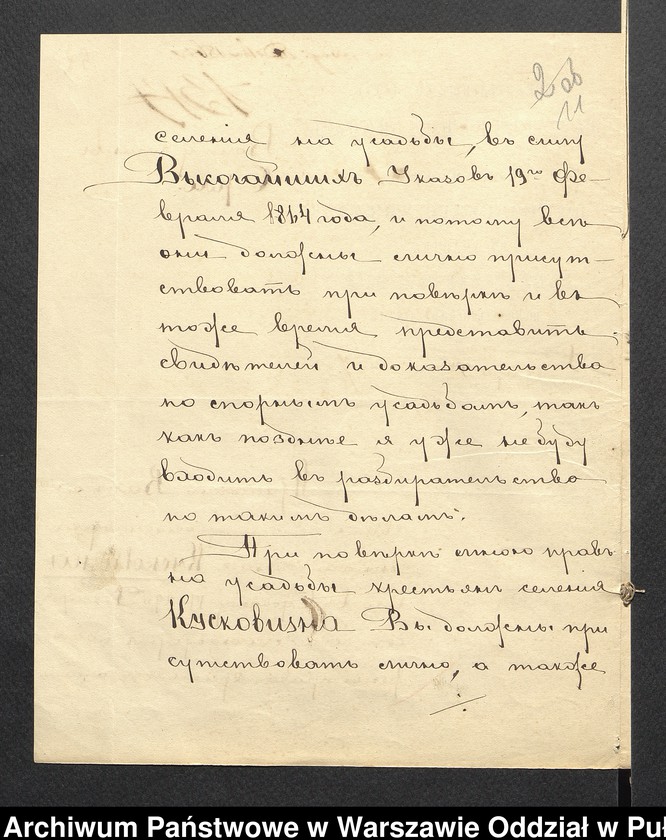 селенія на усадьбы, въ силу
Высочайшихъ Указовъ 19го Фе-
враля 1864 года, и потому всѣ
они должны лично присут-
ствовать при повѣркѣ и въ
тоже время представить
свидѣтелей и доказательства
по спорнымъ усадьбамъ, такъ
какъ позднѣе я уже не буду
входить въ разбирательство
по такимъ дѣламъ.
При повѣркѣ мною правъ
на усадьбы крестьянъ селенія
Кусковизна Вы должны при
сутствовать лично, а также
./.
Archiwum Państwowe w Warszawie Oddział w Pu